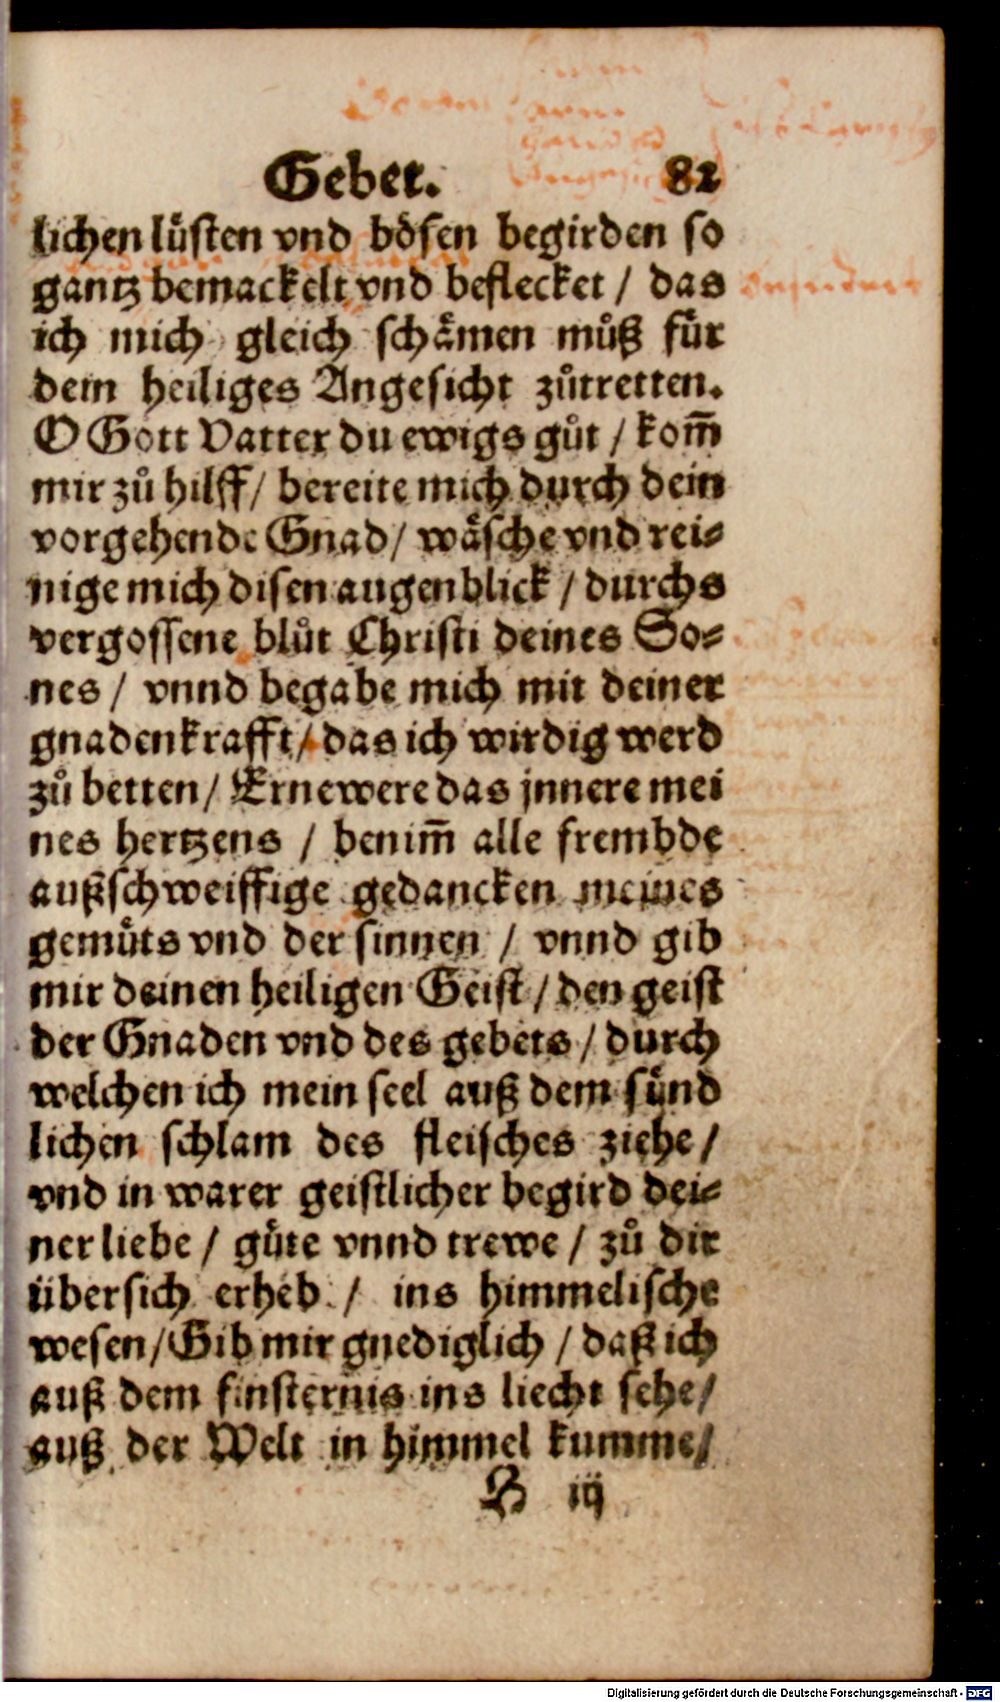 Gebet. 82
lichen lüsten vnd bösen begirden so
gantz bemackelt vnd beflecket / das
ich mich gleich schämen můß für
dein heiliges Angesicht zůtretten.
O Gott Vatter du ewigs gůt / kom̃
mir zů hilff / bereite mich durch dein
vorgehende Gnad / wäsche vnd rei⸗
nige mich disen augenblick / durchs
vergossene blůt Christi deines So⸗
nes / vnnd begabe mich mit deiner
gnadenkrafft / das ich wirdig werd
zů betten / Ernewere das jnnere mei
nes hertzens / benim̃ alle frembde
außschweiffige gedancken meines
gemüts vnd der sinnen / vnnd gib
mir deinen heiligen Geist / den geist
der Gnaden vnd des gebets / durch
welchen ich mein seel auß dem sünd
lichen schlam des fleisches ziehe /
vnd in warer geistlicher begird dei⸗
ner liebe / güte vnnd trewe / zů dir
übersich erheb / ins himmelische
wesen / Gib mir gnediglich / daß ich
auß dem finsternis ins liecht sehe /
auß der Welt in himmel kumme /
iij
Digitalisierung gefördert durch die Deutsche Forschungsgemeinschaft - DFG